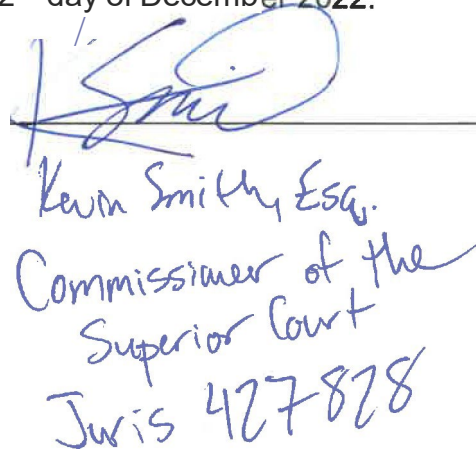 day of December 2022.
Kevin Smith, Esq.
Commissioner of the
Superior Court
Juris 427828